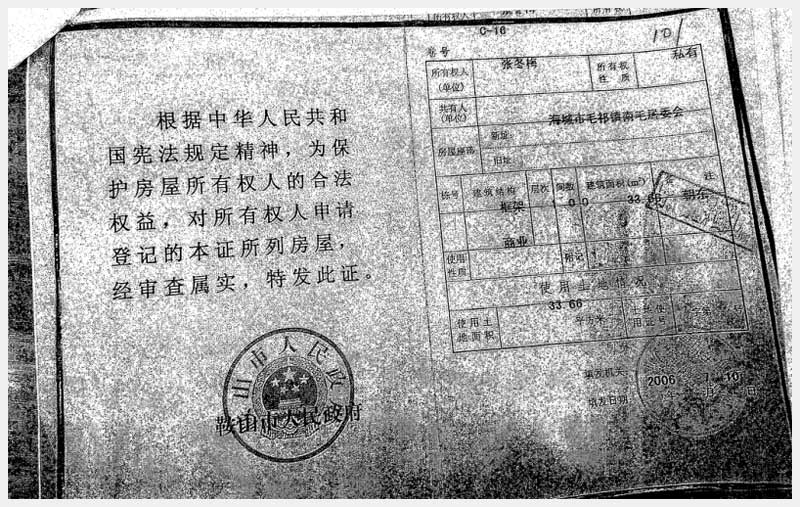 根据中华人民共和
国宪法规定精神，为保
护房屋所有权人的合法
权益，对所有权人申请
登记的本证所列房屋，
经审查属实，特发此证。
山市人民政
鞍山市人民政府
C-16
卷号
101
所有权人
(单位)
张冬梅
所有权
性 质
私有
共有人
(单位)
房屋座落
新址
海城市毛祁镇南毛居委会
旧址
栋号
建筑结构
层次
间数
建筑面积(m²)
备 注
框架
1
0
0
33.66
朝东
使用
性质
商业
附记
使用土地情况
使用土
地面积
33.66
平方米
土地使
用证号
填发机关
填发日期
2006
年
7
月
10
日